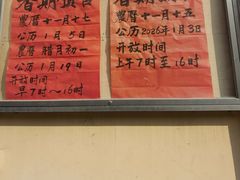 農曆十一月十七
公历1月5日
農曆臘月初一
公历1月19日
开放时间
早7时~16时
農曆十一月十五
公历2026年1月3日
开放时间
上午7时至16时